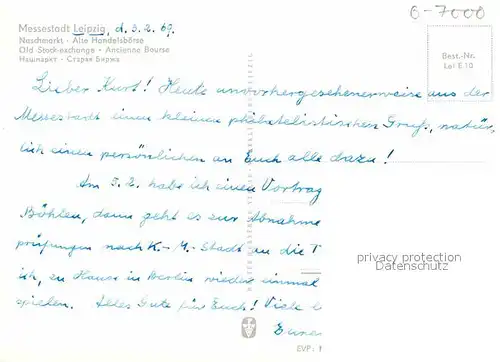 Messestadt Leipzig, d. 3.2.69.
Naschmarkt · Alte Handelsbörse
Old Stock-exchange · Ancienne Bourse
Нашмаркт · Старая Биржа
6-7000
Best.-Nr.
Lei E 10
Lieber Kurt! Heute unvorhergesehenerweise aus der
Messestadt einen kleinen philatelistischen Gruß, natür-
lich einen persönlichen an Euch alle dazu!
Am 5.2. habe ich einen Vortrag
Böhlen, dann geht es zur Abnahme
prüfungen nach K.-M.-Stadt an die T
ich, zu Hause in Berlin wieder einmal
spielen. Alles Gute für Euch! Viele
Euer
privacy protection
Datenschutz
EVP: